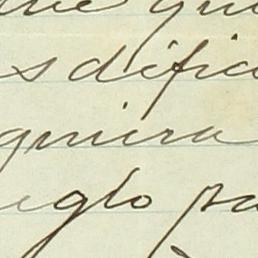 que qui
s difici
quiera
eglo pa